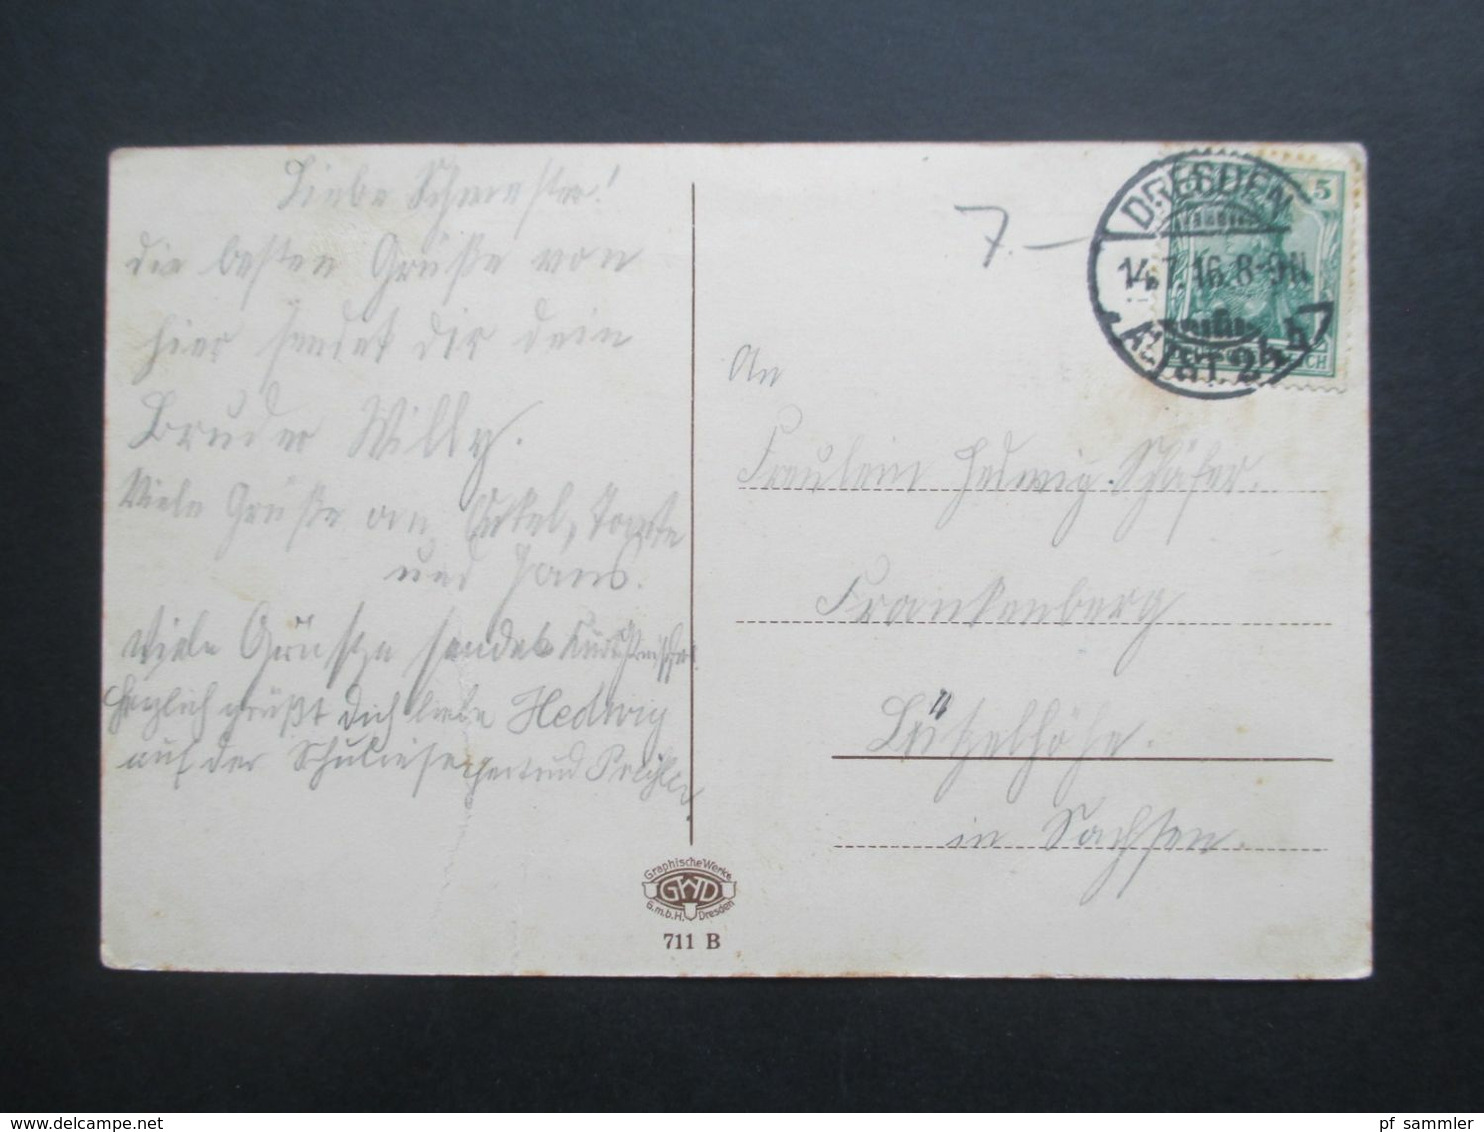 Liebe Schwester!
die besten Grüße von
hier sendet dir dein
Bruder Willy.
Viele Grüße von Onkel, Tante
und Hans.
Viele Grüße sendet Kurt
Herzlich grüßt dich liebe Hedwig
auf der
7.–
DRESDEN
14.7.16.8-9N
ALTST. 24
5
An
Fräulein Hedwig Schäfer.
Frankenberg
Lützelhöhe.
in Sachsen.
Graphische Werke
GWD
G.m.b.H. Dresden
711 B
delcampe.net
pf_sammler